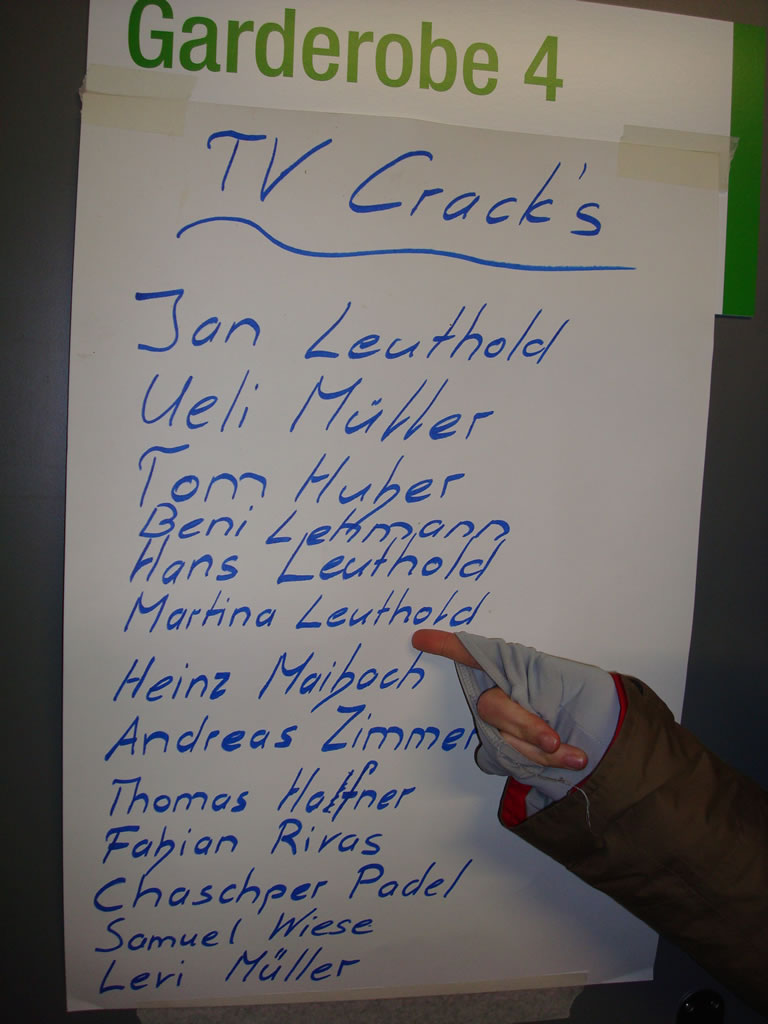 Garderobe 4
TV Crack's
Jan Leuthold
Ueli Müller
Tom Huber
Beni Lehmann
Hans Leuthold
Martina Leuthold
Heinz Maibach
Andreas Zimmer
Thomas Haffner
Fabian Rivas
Chaschper Padel
Samuel Wiese
Levi Müller